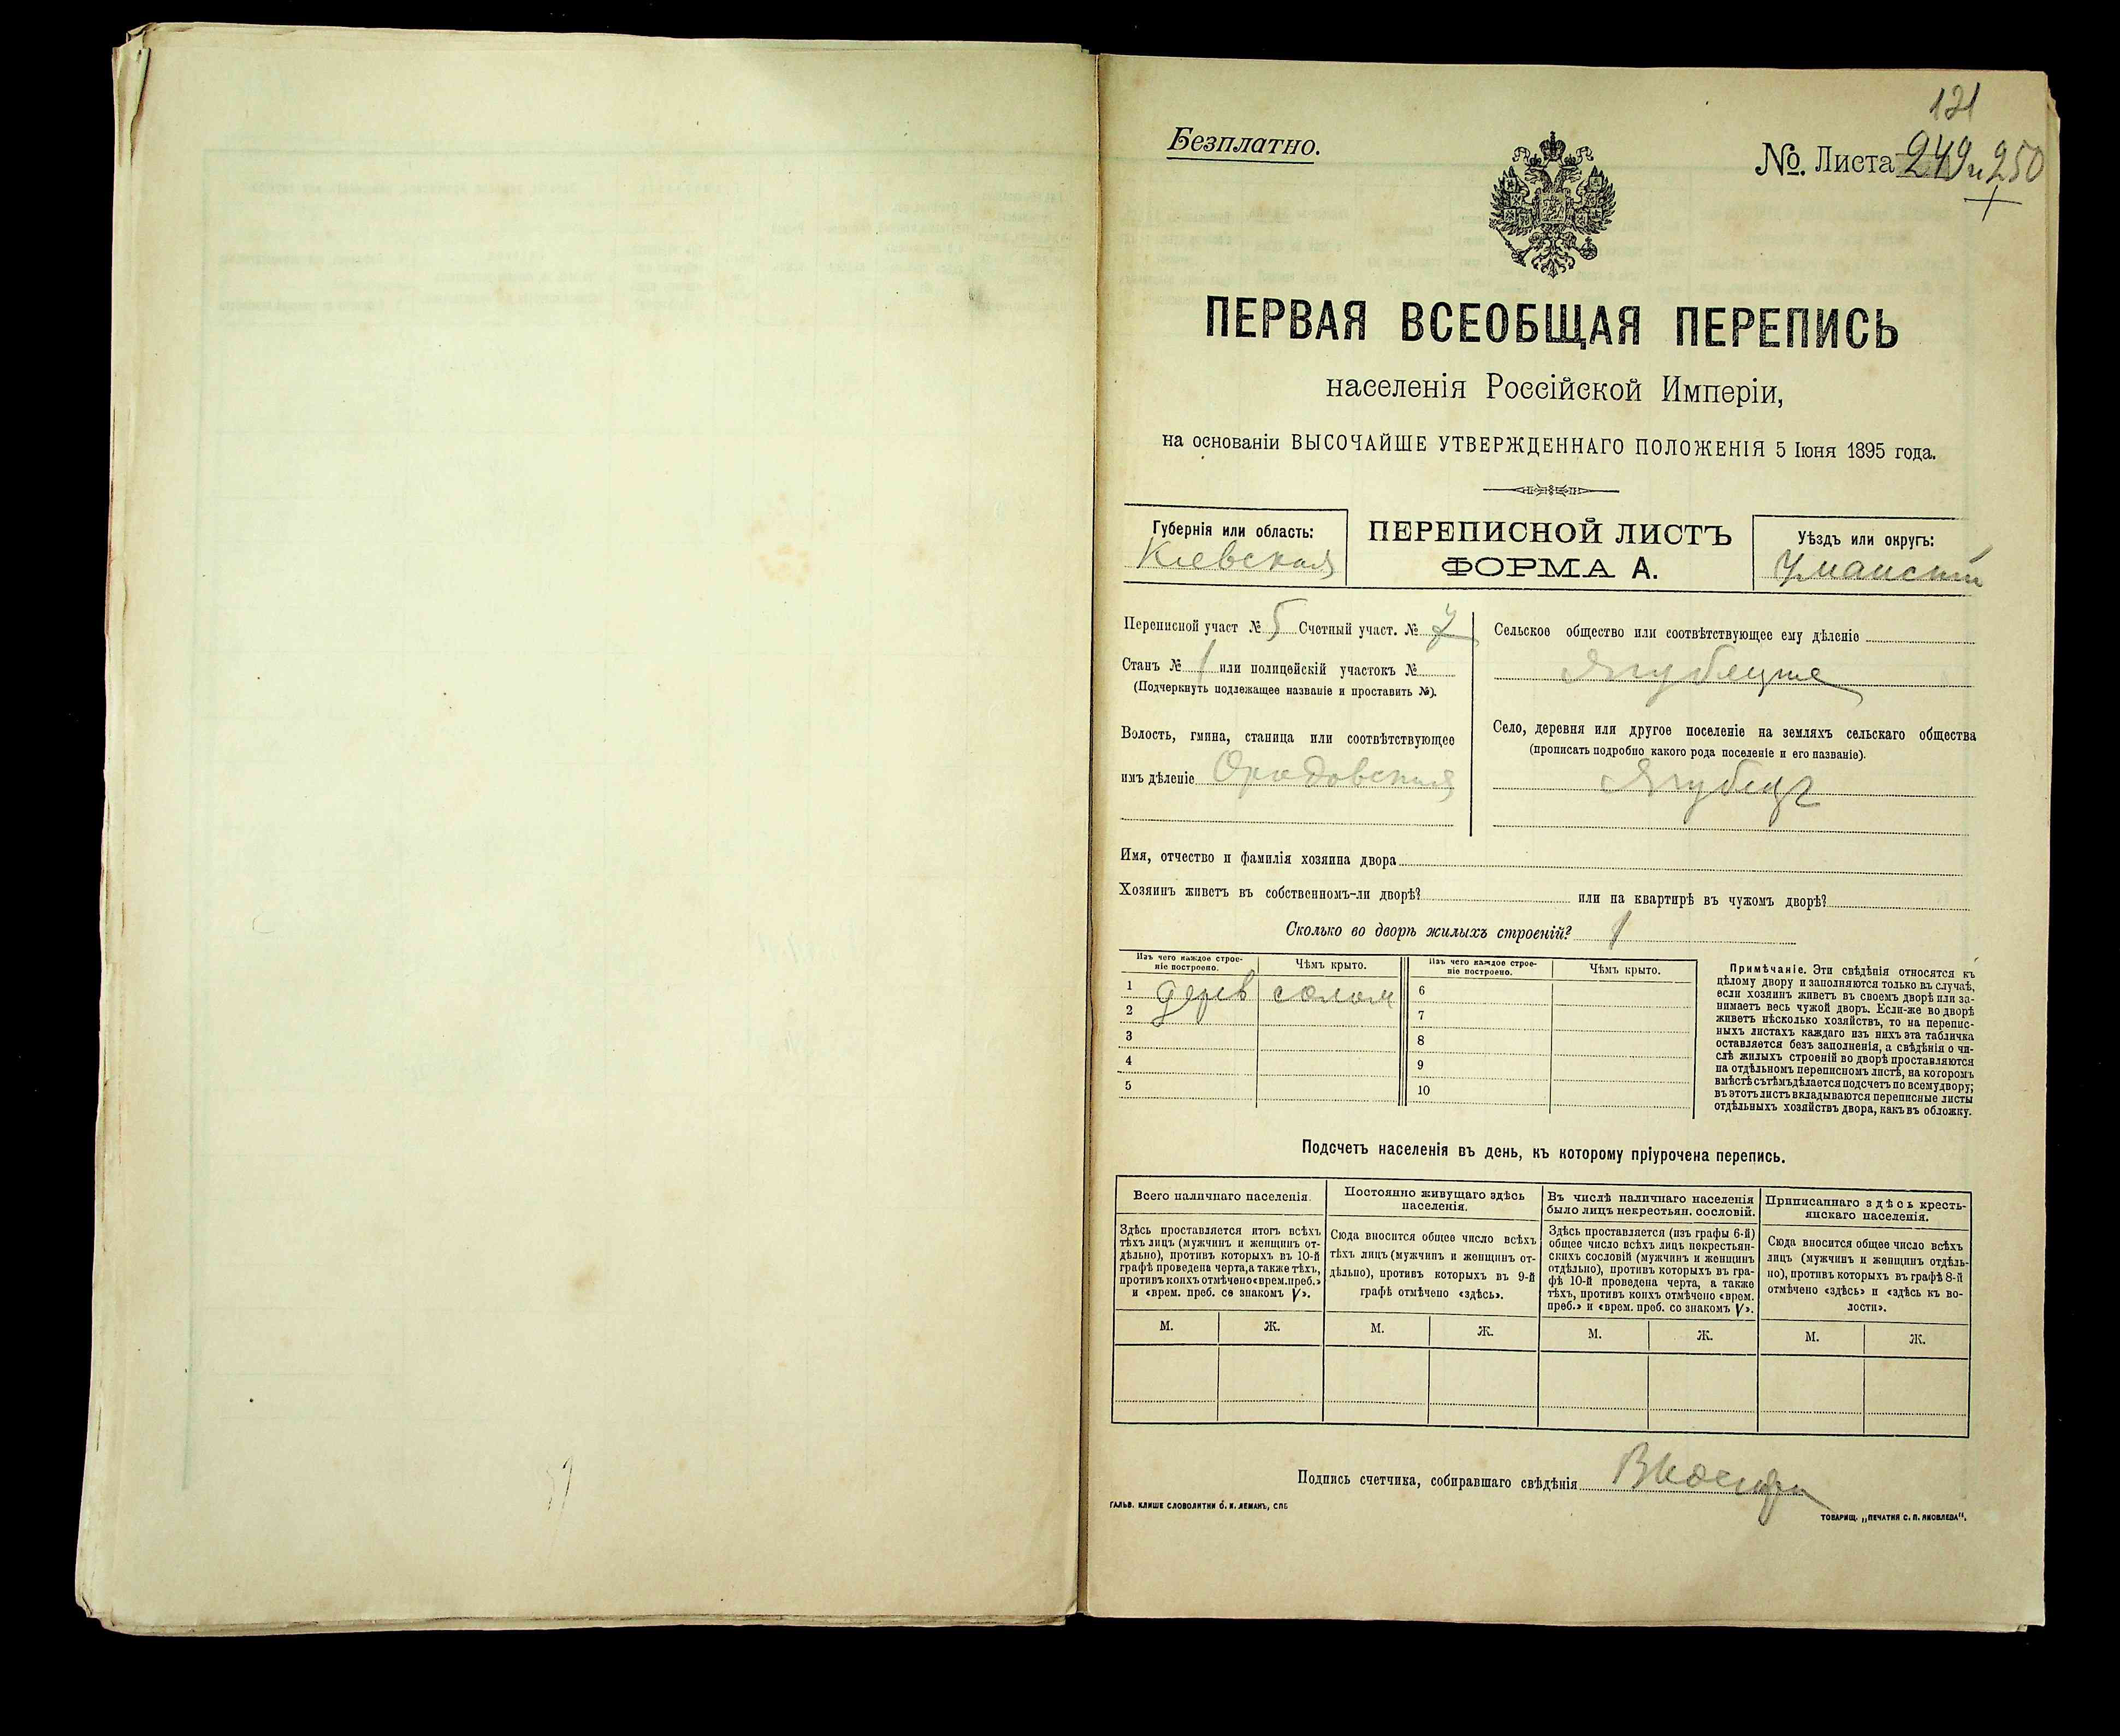 121
Безплатно.
№. Листа 249 и 250
ПЕРВАЯ ВСЕОБЩАЯ ПЕРЕПИСЬ
населенія Россійской Имперіи,
на основаніи ВЫСОЧАЙШЕ УТВЕРЖДЕННАГО ПОЛОЖЕНІЯ 5 Іюня 1895 года.
Губернія или область:
Кіевская
ПЕРЕПИСНОЙ ЛИСТЪ
ФОРМА А.
Уѣздъ или округъ:
Уманскій
Переписной участ № 5 Счетный участ. № 7
Станъ № 1 или полицейскій участокъ №
(Подчеркнуть подлежащее названіе и проставить №).
Волость, гмина, станица или соотвѣтствующее
имъ дѣленіе Орадовская
Сельское общество или соотвѣтствующее ему дѣленіе
Село, деревня или другое поселеніе на земляхъ сельскаго общества
(прописать подробно какого рода поселеніе и его названіе).
Ягубецъ
Имя, отчество и фамилія хозяина двора
Хозяинъ живетъ въ собственномъ-ли дворѣ? или на квартирѣ въ чужомъ дворѣ?
Сколько во дворѣ жилыхъ строеній? 1
Изъ чего каждое строе-
ніе построено.
Чѣмъ крыто.
Изъ чего каждое строе-
ніе построено.
Чѣмъ крыто.
1 дерев солом 6
2 7
3 8
4 9
5 10
Примѣчаніе. Эти свѣдѣнія относятся къ
цѣлому двору и заполняются только въ случаѣ,
если хозяинъ живетъ въ своемъ дворѣ или за-
нимаетъ весь чужой дворъ. Если-же во дворѣ
живетъ нѣсколько хозяйствъ, то на перепис-
ныхъ листахъ каждаго изъ нихъ эта табличка
оставляется безъ заполненія, а свѣдѣнія о чи-
слѣ жилыхъ строеній во дворѣ проставляются
на отдѣльномъ переписномъ листѣ, на которомъ
вмѣстѣ съ тѣмъ дѣлается подсчетъ по всему двору;
въ этотъ листъ вкладываются переписные листы
отдѣльныхъ хозяйствъ двора, какъ въ обложку.
Подсчетъ населенія въ день, къ которому пріурочена перепись.
Всего наличнаго населенія.
Здѣсь проставляется итогъ всѣхъ
тѣхъ лицъ (мужчинъ и женщинъ от-
дѣльно), противъ которыхъ въ 10-й
графѣ проведена черта, а также тѣхъ,
противъ коихъ отмѣчено «врем. преб.»
и «врем. преб. со знакомъ V».
Постоянно живущаго здѣсь
населенія.
Сюда вносится общее число всѣхъ
тѣхъ лицъ (мужчинъ и женщинъ от-
дѣльно), противъ которыхъ въ 9-й
графѣ отмѣчено «здѣсь».
Въ числѣ наличнаго населенія
было лицъ некрестьян. сословій.
Здѣсь проставляется (изъ графы 6-й)
общее число всѣхъ лицъ некрестьян-
скихъ сословій (мужчинъ и женщинъ
отдѣльно), противъ которыхъ въ гра-
фѣ 10-й проведена черта, а также
тѣхъ, противъ коихъ отмѣчено «врем.
преб.» и «врем. преб. со знакомъ V».
Приписаннаго здѣсь кресть-
янскаго населенія.
Сюда вносится общее число всѣхъ
лицъ (мужчинъ и женщинъ отдѣль-
но), противъ которыхъ въ графѣ 8-й
отмѣчено «здѣсь» и «здѣсь къ во-
лости».
М. Ж. М. Ж. М. Ж. М. Ж.
Подпись счетчика, собиравшаго свѣдѣнія
ГАЛЬВ. КЛИШЕ СЛОВОЛИТНИ О. И. ЛЕМАНЪ, СПБ
ТОВАРИЩ. „ПЕЧАТНЯ С. П. ЯКОВЛЕВА".